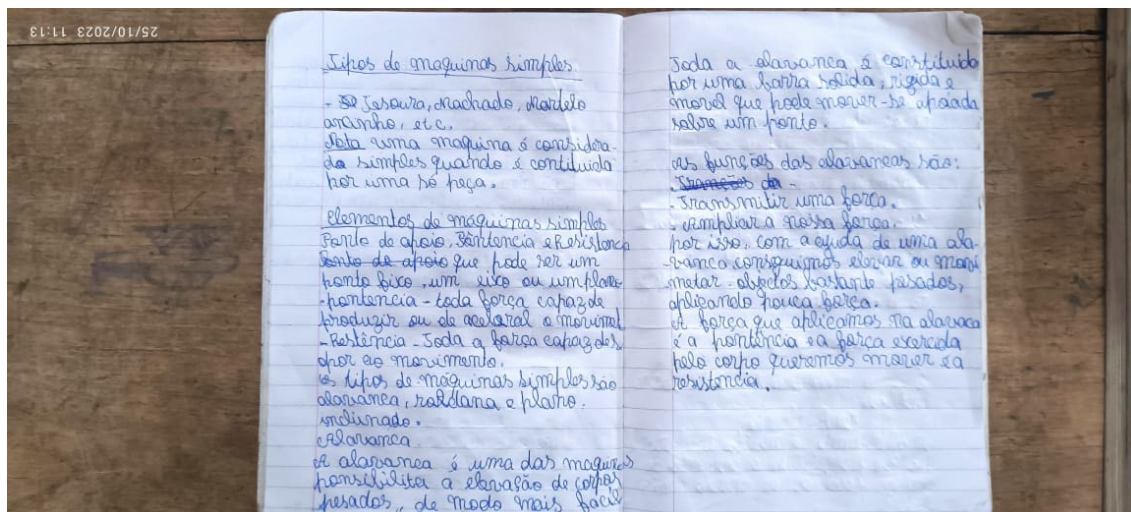 25/10/2023 11:13
Tipos de maquinas simples
- Tesoura, Machado, Martelo
ancinho, etc.
Nota uma maquina é considera-
da simples quando é contituida
por uma só peça.
Elementos de maquinas simples
Ponto de apoio, Pontencia e Resistencia
Ponto de apoio que pode ser um
ponto fixo, um eixo ou um plano
- pontencia - toda força capaz de
produzir ou de acelaral o movimet
- Restência - Toda a força capaz de s
opor ao movimento.
Os tipos de máquinas simples são
alavanca, roldana e plano.
inclinado.
Alavanca
A alavanca é uma das maquinas
ponsibilita a elevação de corpos
pesados, de modo mais facil
Toda a alavanca é constituido
por uma barra solida, rigida e
movel que pode mover-se apoiada
sobre um ponto.
As funções das alavancas são:
- Transmitir uma força.
- Ampliar a nossa força.
por isso, com a ajuda de uma ala-
vanca conseguimos elevar ou movi
metar objectos bastante pesados,
aplicando pouca força.
A força que aplicamos na alavaca
é a pontência e a força exercida
pelo corpo queremos mover é a
resistencia.